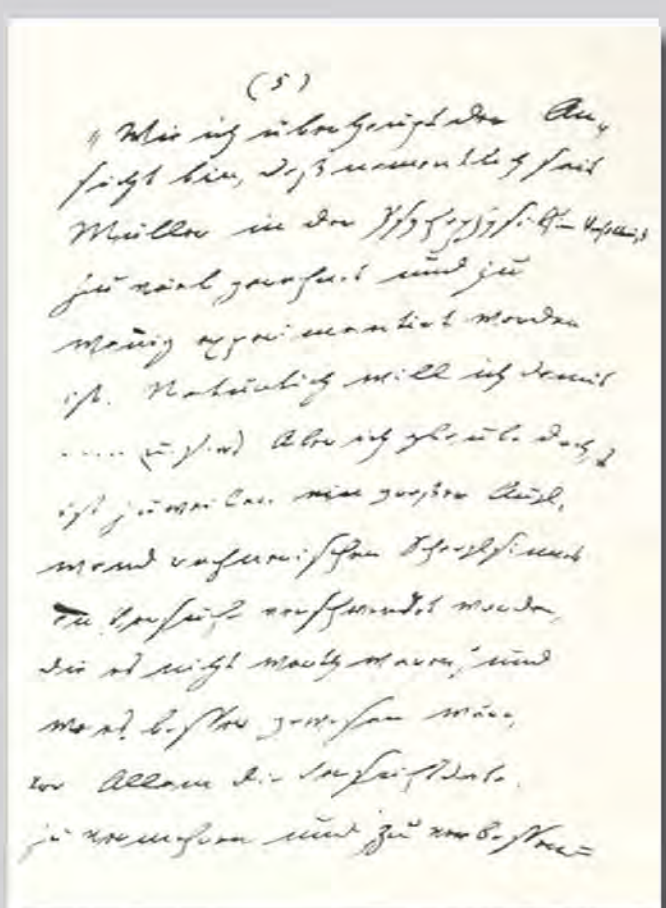 (5)
„Wie ich überzeugt der An„
sicht bin, daß namentlich seit
Müller in der Psychophysik
zu viel gerechnet und zu
wenig experimentirt worden
ist. Natürlich will ich damit
..... Aber ich glaube doch, 
ist zuweilen ein großer Aufw„
wand rechnerischen Scharfsinnes
an Versuche verschwendet worden,
die es nicht werth waren, und
wo es besser gewesen wäre,
vor Allem die Versuche
zu vermehren und zu verbessern=